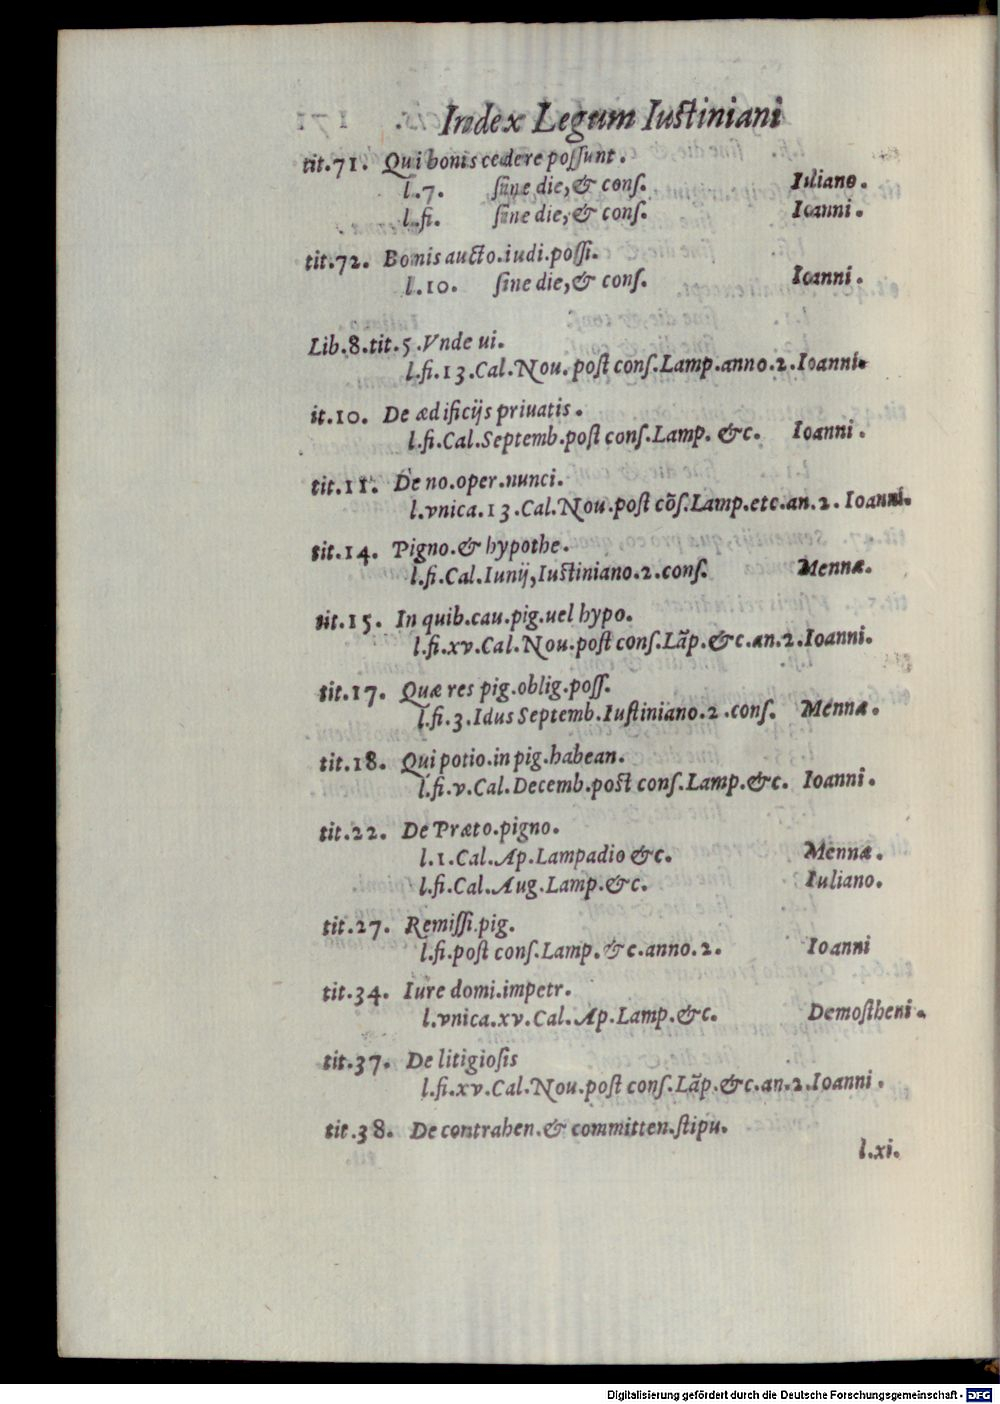 Index Legum Iustiniani
tit.71. Qui bonis cedere possunt.
l.7. sine die, & cons. Iuliano.
l.fi. sine die, & cons. Ioanni.
tit.72. Bonis aucto.iudi.possi.
l.10. sine die, & cons. Ioanni.
Lib.8.tit.5.Vnde ui.
l.fi.13.Cal.Nou.post cons.Lamp.anno.2.Ioanni.
it.10. De ædificijs priuatis.
l.fi.Cal.Septemb.post cons.Lamp. &c. Ioanni.
tit.11. De no.oper.nunci.
l.vnica.13.Cal.Nou.post cõs.Lamp.etc.an.2. Ioanni.
tit.14. Pigno.& hypothe.
l.fi.Cal.Iunij,Iustiniano.2.cons. Mennæ.
tit.15. In quib.cau.pig.uel hypo.
l.fi.xv.Cal.Nou.post cons.Lãp.&c.an.2.Ioanni.
tit.17. Quæ res pig.oblig.poss.
l.fi.3.Idus Septemb.Iustiniano.2.cons. Mennæ.
tit.18. Qui potio.in pig.habean.
l.fi.v.Cal.Decemb.post cons.Lamp.&c. Ioanni.
tit.22. De Præto.pigno.
l.1.Cal.Ap.Lampadio &c. Mennæ.
l.fi.Cal.Aug.Lamp.&c. Iuliano.
tit.27. Remissi.pig.
l.fi.post cons.Lamp.&c.anno.2. Ioanni
tit.34. Iure domi.impetr.
l.vnica.xv.Cal.Ap.Lamp.&c. Demostheni.
tit.37. De litigiosis
l.fi.xv.Cal.Nou.post cons.Lãp.&c.an.2.Ioanni.
tit.38. De contrahen.& committen.stipu.
l.xi.
Digitalisierung gefördert durch die Deutsche Forschungsgemeinschaft - DFG